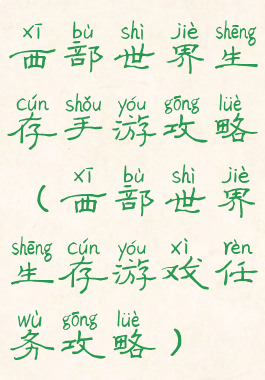 xī bù shì jiè shēng
西部世界生
cún shǒu yóu gōng lüè
存手游攻略
xī bù shì jiè
（西部世界
shēng cún yóu xì rèn
生存游戏任
wù gōng lüè
务攻略）